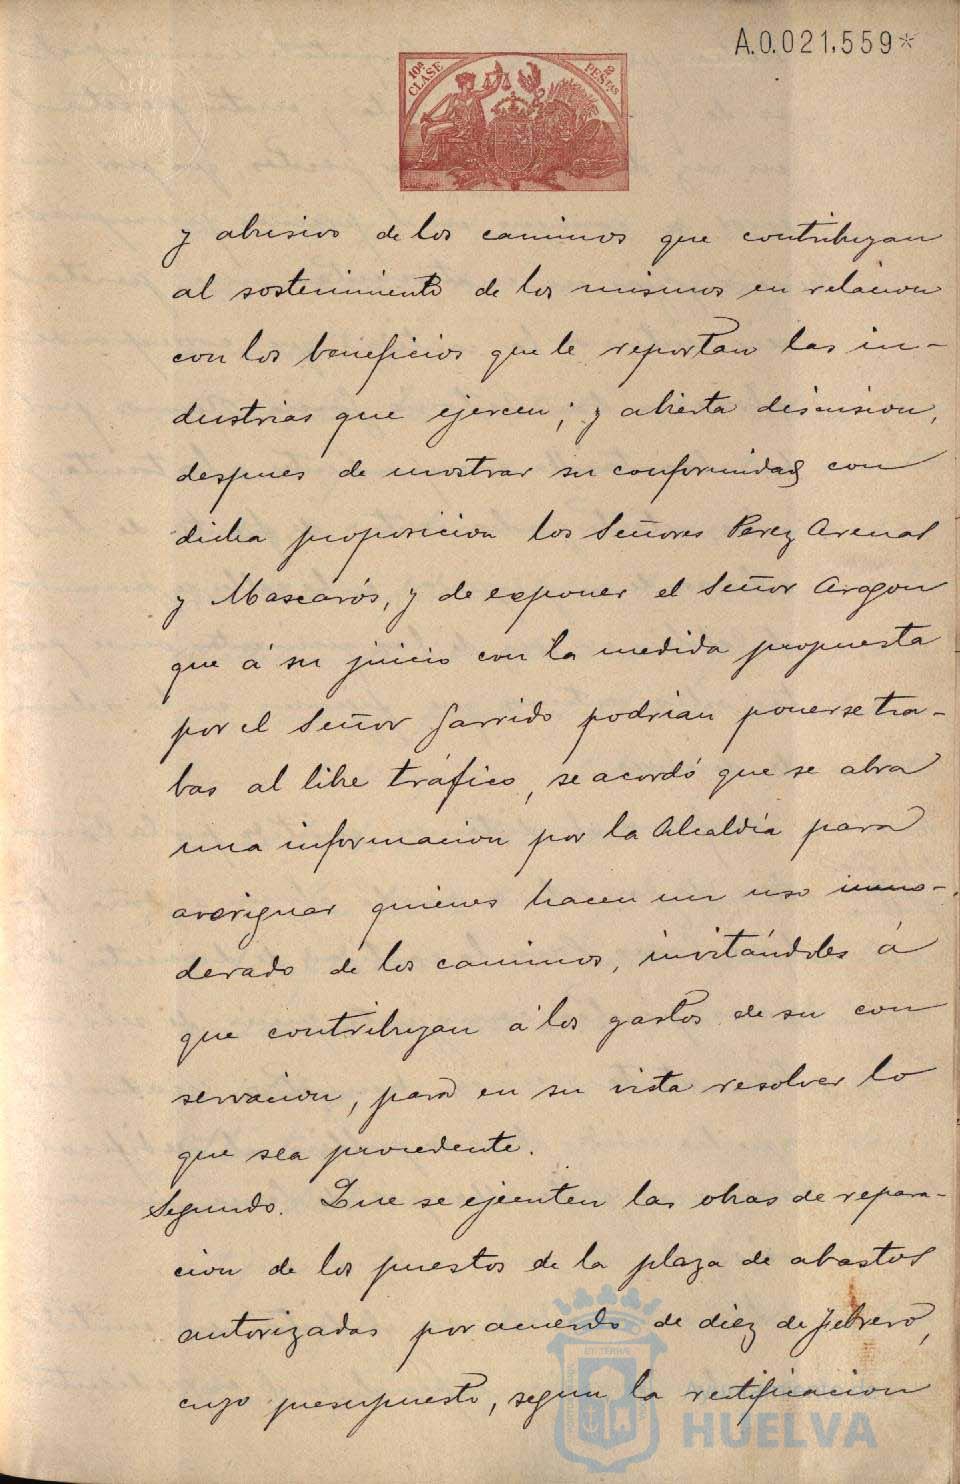 A.0.021,559*
10ª CLASE 2 PESTAS
y abusivo de los caminos que contribuyan
al sostenimiento de los mismos en relacion
con los beneficios que le reportan las in-
dustrias que ejercen; y abierta discusion,
despues de mostrar su conformidad con
dicha proposicion los Señores Perez Arenas
y Mascarós, y de exponer el Señor Aragon
que á su juicio con la medida propuesta
por el Señor Garrido podrian ponerse tra-
bas al libre tráfico, se acordó que se abra
una informacion por la Alcaldía para
averiguar quienes hacen un uso inmo-
derado de los caminos, invitándoles á
que contribuyan á los gastos de su con
servacion, para en su vista resolver lo
que sea procedente.
Segundo. Que se ejecuten las obras de repara-
cion de los puestos de la plaza de abastos
autorizadas por acuerdo de diez de febrero,
cuyo presupuesto, segun la rectificacion
HUELVA